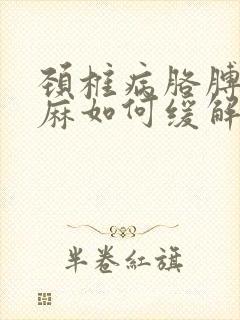 颈椎病胳膊
麻如何缓解
半卷紅旗